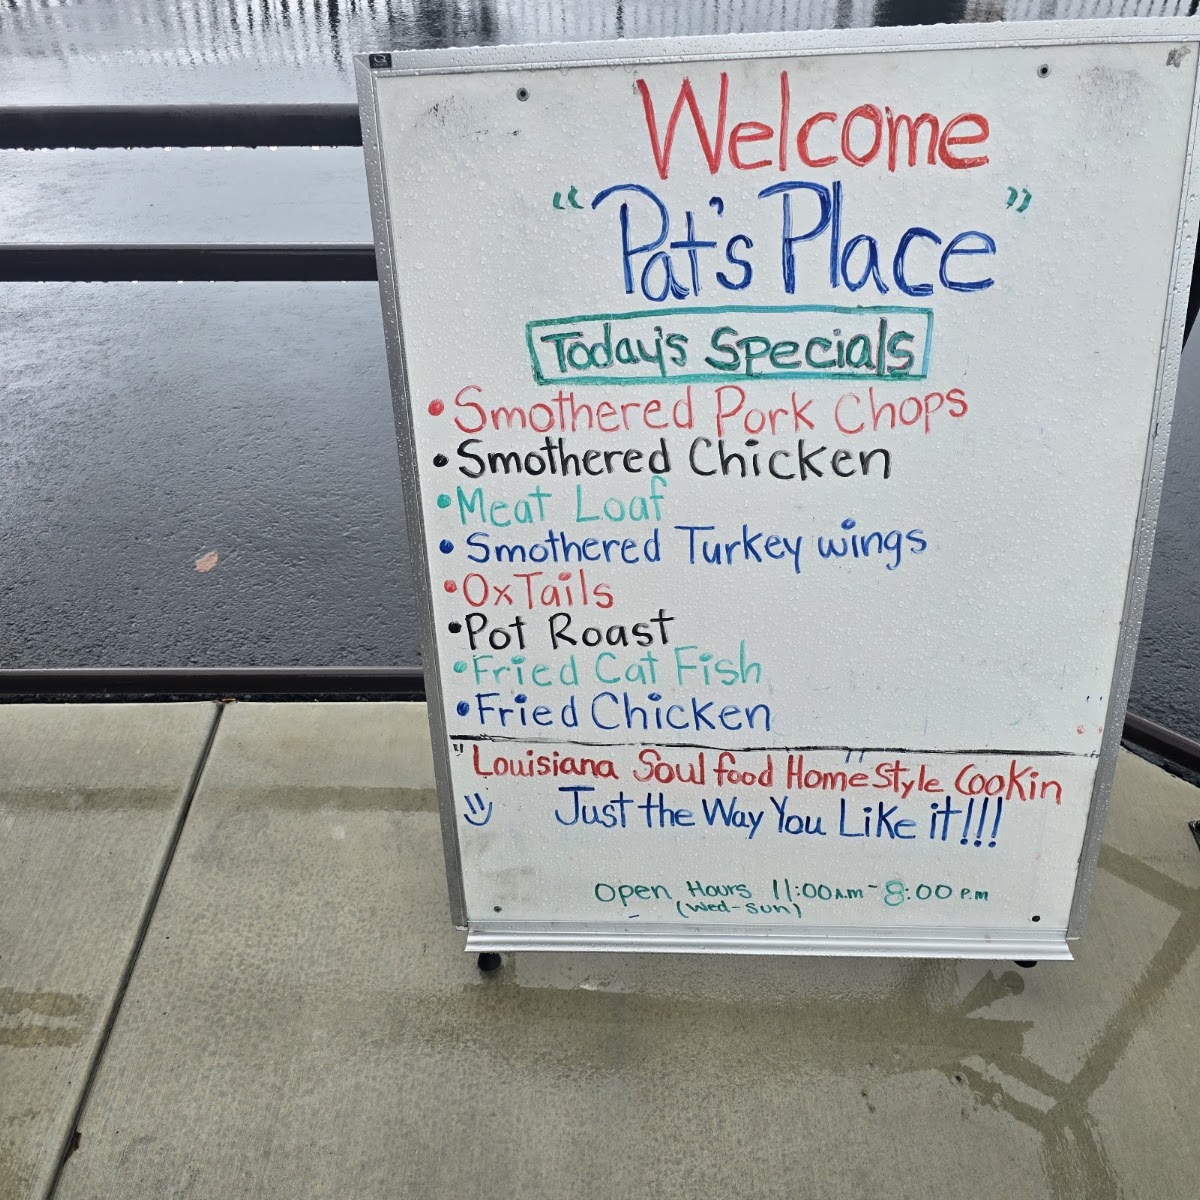 Welcome
"Pat's Place"
Today's Specials
• Smothered Pork Chops
• Smothered Chicken
• Meat Loaf
• Smothered Turkey wings
• OxTails
• Pot Roast
• Fried Cat Fish
• Fried Chicken
"Louisiana Soul food Home Style Cookin"
Just the Way You Like it!!!
Open Hours 11:00 A.M - 8:00 P.M
(Wed-Sun)